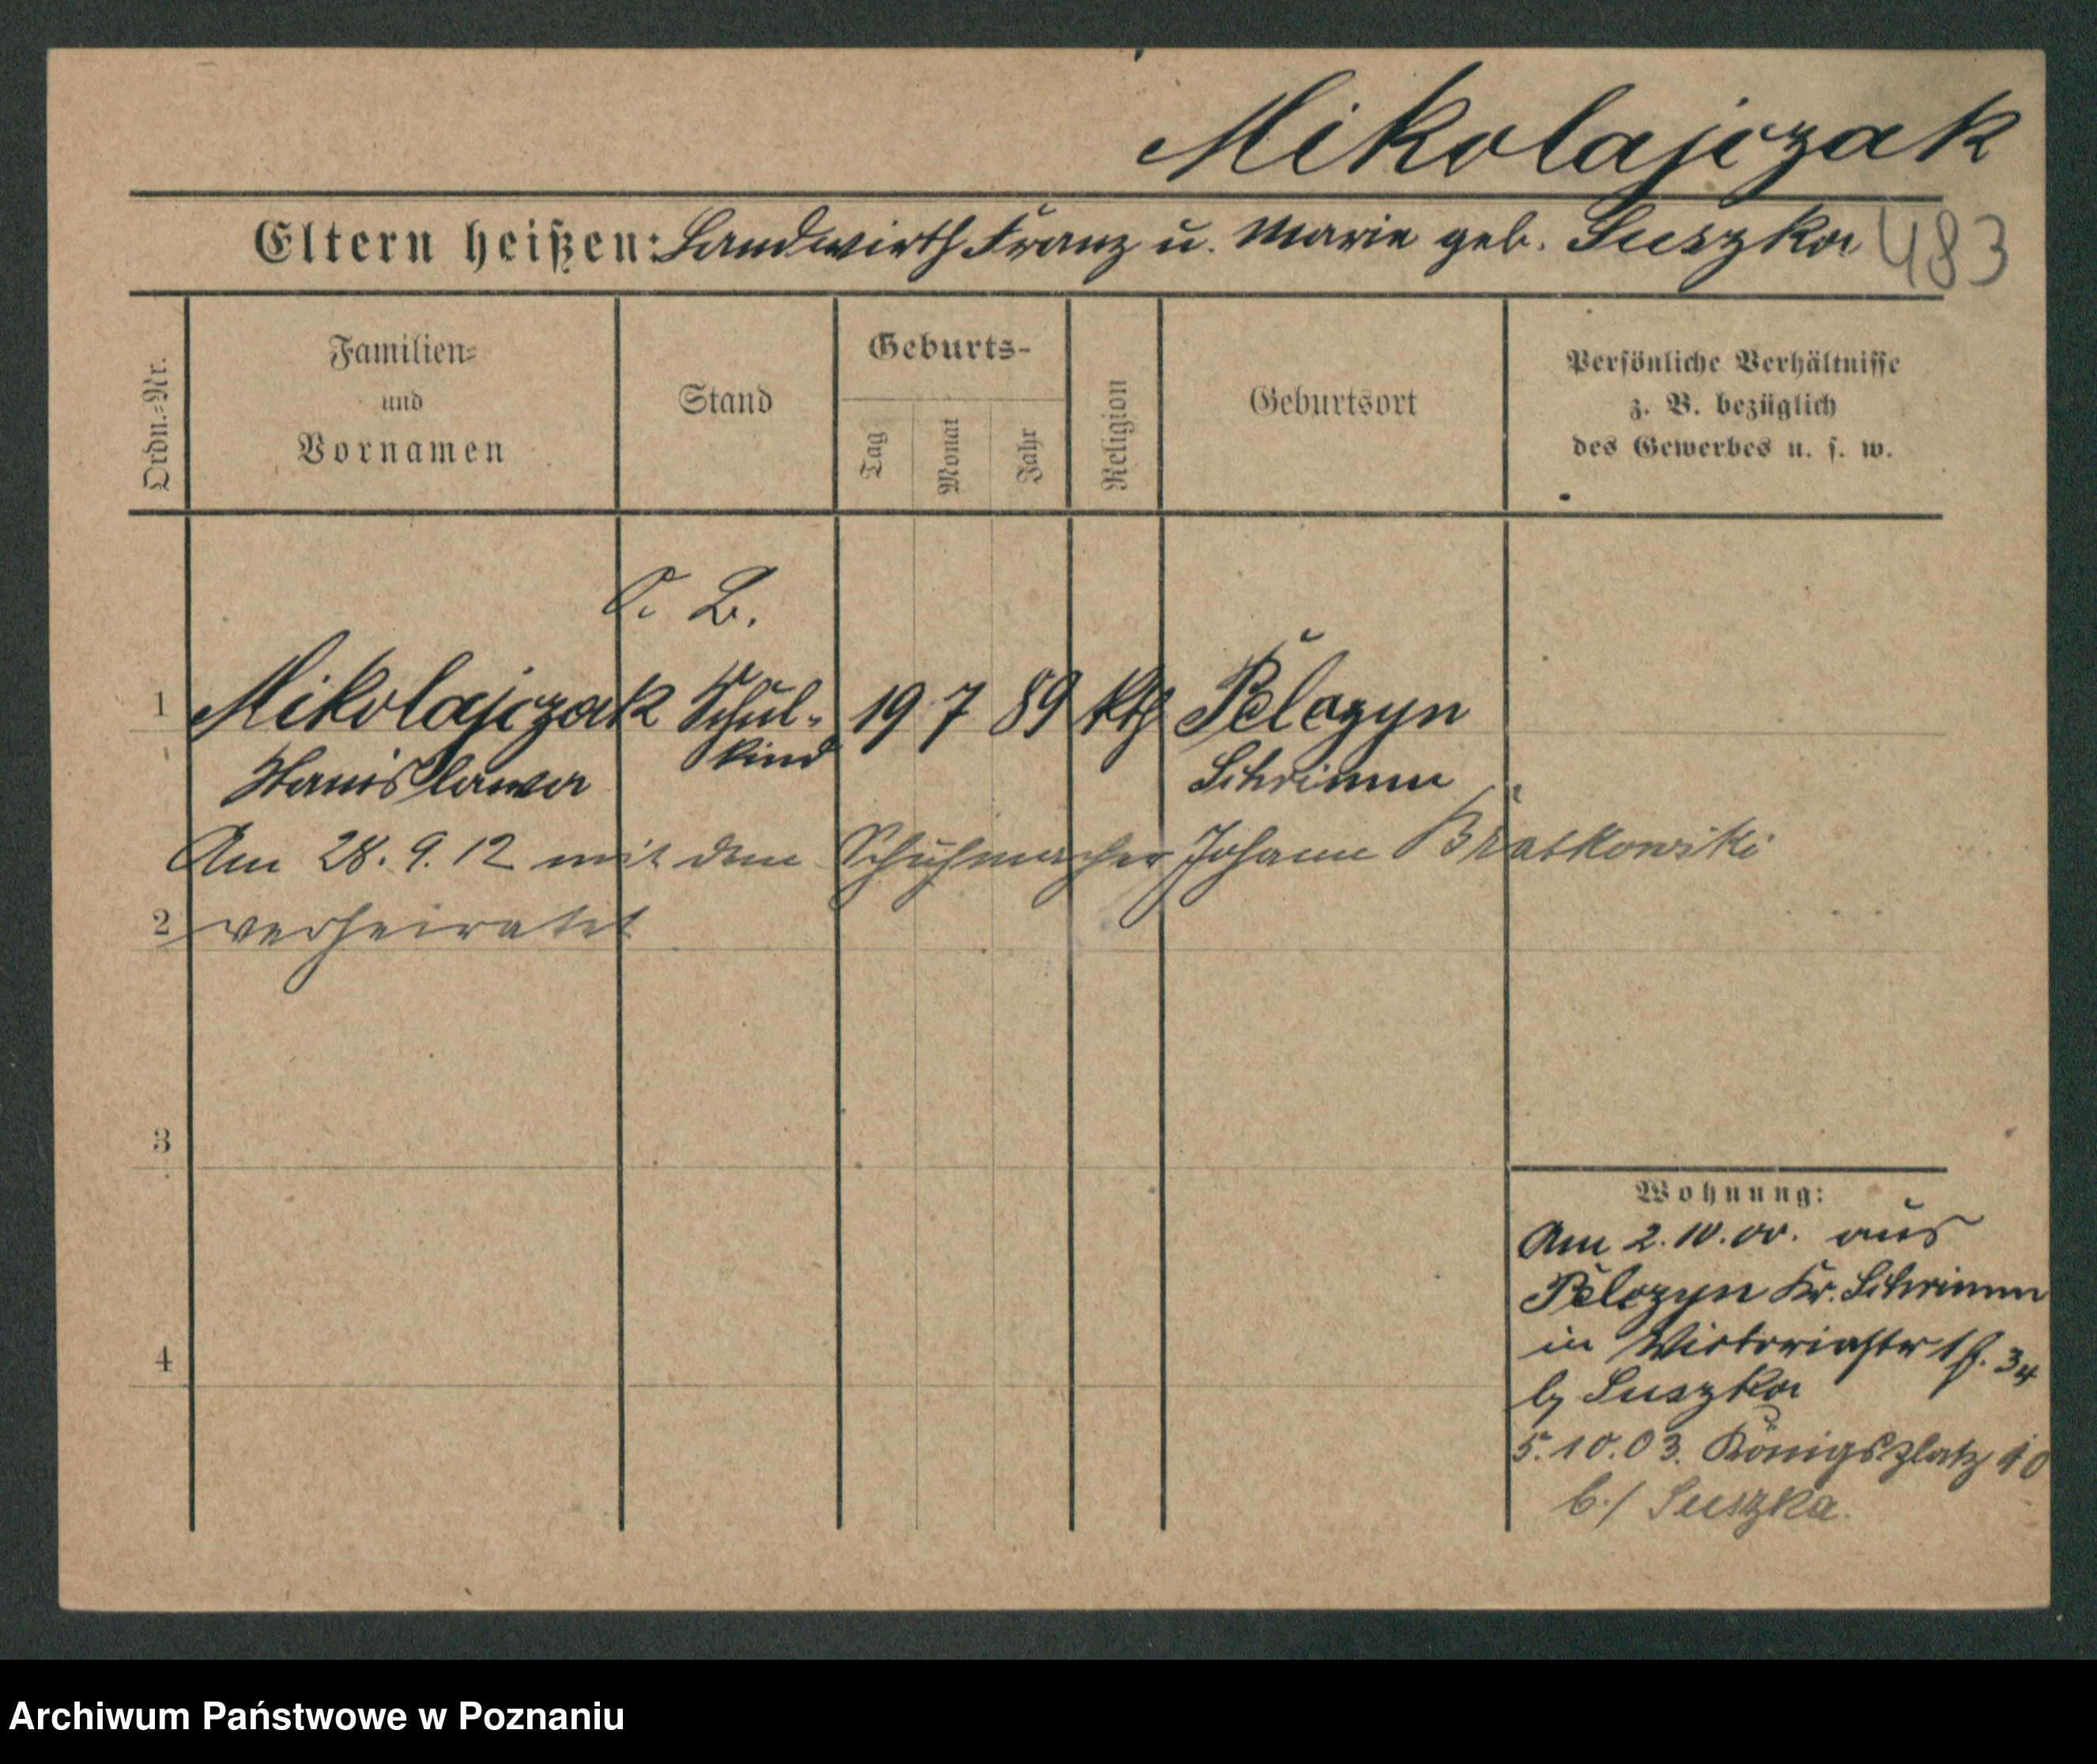 Mikolajczak
Eltern heißen: Landwirth Franz u. Marie geb. Suszka
483
Ordn.-Nr.
Familien-
und
Vornamen
Stand
Geburts-
Tag
Monat
Jahr
Religion
Geburtsort
Persönliche Verhältnisse
z. B. bezüglich
des Gewerbes u. s. w.
1 Mikolajczak Schul- 19 7 89 kth
Stanislawa kind Schrimm
Am 28. 9. 12 mit dem Schuhmacher Johann
2 verheiratet
3
4
Wohnung:
Am 2.10.00. aus
Kr. Schrimm
in Victoriastr
b/ Suszka
5.10.03. Königsplatz 10
b./ Suszka.
Archiwum Państwowe w Poznaniu